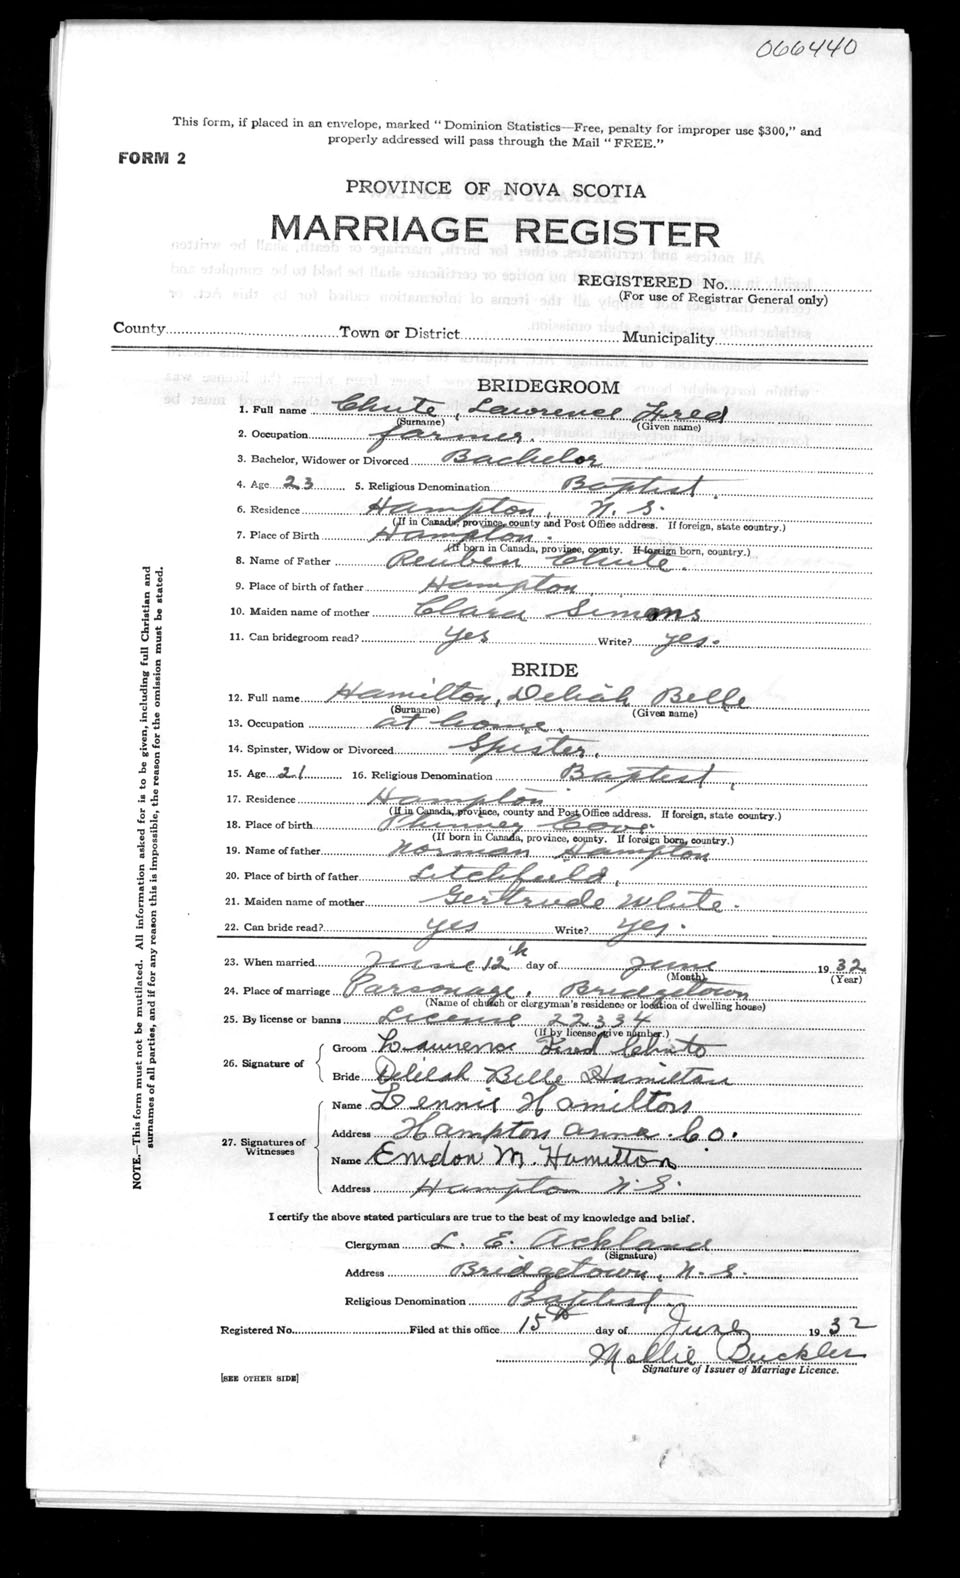 066440
This form, if placed in an envelope, marked "Dominion Statistics—Free, penalty for improper use $300," and
properly addressed will pass through the Mail "FREE."
FORM 2
PROVINCE OF NOVA SCOTIA
MARRIAGE REGISTER
REGISTERED No.
(For use of Registrar General only)
County Town or District Municipality
BRIDEGROOM
1. Full name Chute, Lawrence Fred
(Surname) (Given name)
2. Occupation farmer.
3. Bachelor, Widower or Divorced Bachelor
4. Age 23 5. Religious Denomination Baptist.
6. Residence Hampton, N.S.
(If in Canada, province, county and Post Office address. If foreign, state country.)
7. Place of Birth Hampton.
(If born in Canada, province, county. If foreign born, country.)
8. Name of Father Reuben Chute.
9. Place of birth of father Hampton
10. Maiden name of mother Clara Simons
11. Can bridegroom read? yes Write? yes.
BRIDE
12. Full name Hamilton, Deliah Belle
(Surname) (Given name)
13. Occupation at home
14. Spinster, Widow or Divorced Spister,
15. Age 21 16. Religious Denomination Baptist,
17. Residence Hampton
(If in Canada, province, county and Post Office address. If foreign, state country.)
18. Place of birth Phinney Cove
(If born in Canada, province, county. If foreign born, country.)
19. Name of father Norman Hampton
20. Place of birth of father Litchfield,
21. Maiden name of mother Gertrude White.
22. Can bride read? yes Write? yes.
23. When married June 12th day of June 1932
(Month) (Year)
24. Place of marriage Parsonage, Bridgetown
(Name of church or clergyman's residence or location of dwelling house)
25. By license or banns License 22334
(If by license, give number.)
26. Signature of Groom Lawrence Fred Chute
Bride Delilah Belle Hamilton
27. Signatures of Witnesses Name Dennis Hamilton
Address Hampton Anna. Co.
Name Emdon M. Hamilton
Address Hampton N.S.
I certify the above stated particulars are true to the best of my knowledge and belief.
Clergyman L. E. Ackland
(Signature)
Address Bridgetown, N.S.
Religious Denomination Baptist
Registered No. Filed at this office 15th day of June 1932
Mollie Buckler
Signature of Issuer of Marriage Licence.
[SEE OTHER SIDE]
NOTE.—This form must not be mutilated. All information asked for is to be given, including full Christian and
surnames of all parties, and if for any reason this is impossible, the reason for the omission must be stated.